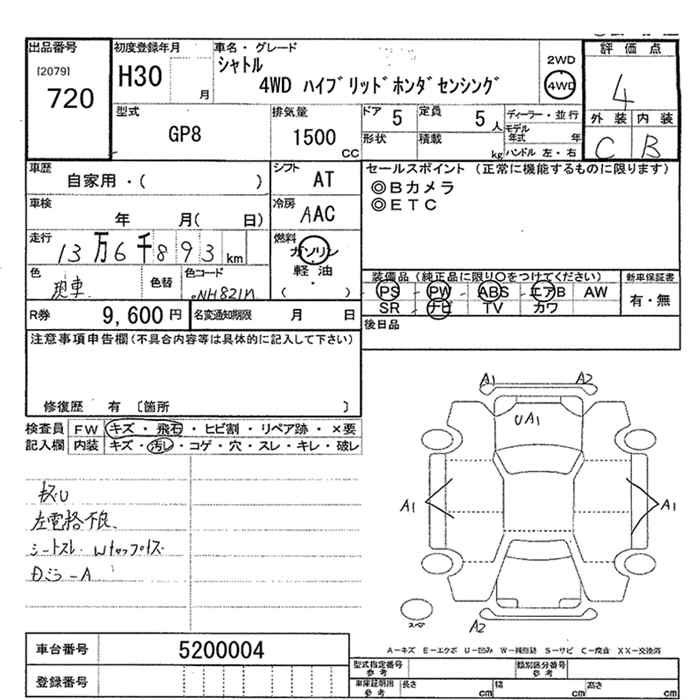 出品番号
[2079]
720
初度登録年月
H30
月
車名・グレード
シャトル
4WD ハイブリッドホンダセンシング
2WD
4WD
評価点
4
外装 内装
C B
型式
GP8
排気量
1500
CC
ドア
5
定員
5
人
形状
積載
kg
ディーラー・並行
モデル年式 年
ハンドル 左・右
車歴
自家用・( )
シフト
AT
車検
年 月( 日)
冷房
AAC
走行
13万6千893km
燃料
ガソリン
軽油
( ・ )
色
現車
色替
色コード
NH821M
R券
9,600円
名変通知期限 月 日
セールスポイント (正常に機能するものに限ります)
◎Bカメラ
◎ETC
装備品(純正品に限り〇をつけてください)
PS PW ABS エアB AW
SR ナビ TV カワ
新車保証書
有・無
後日品
注意事項申告欄(不具合内容等は具体的に記入して下さい)
修復歴 有 〔箇所 〕
検査員記入欄
FW キズ・飛石・ヒビ割・リペア跡・×要
内装 キズ・汚レ・コゲ・穴・スレ・キレ・破レ
左電格不良
シートスレ
A1
A2
UA1
A1
A1
A2
スペア
A-キズ E-エクボ U-凹み W-補修跡 S-サビ C-腐食 XX-交換済
車台番号
5200004
登録番号
型式指定番号
参考
類別区分番号
参考
車庫証明用
参考
長さ cm
幅 cm
高さ cm